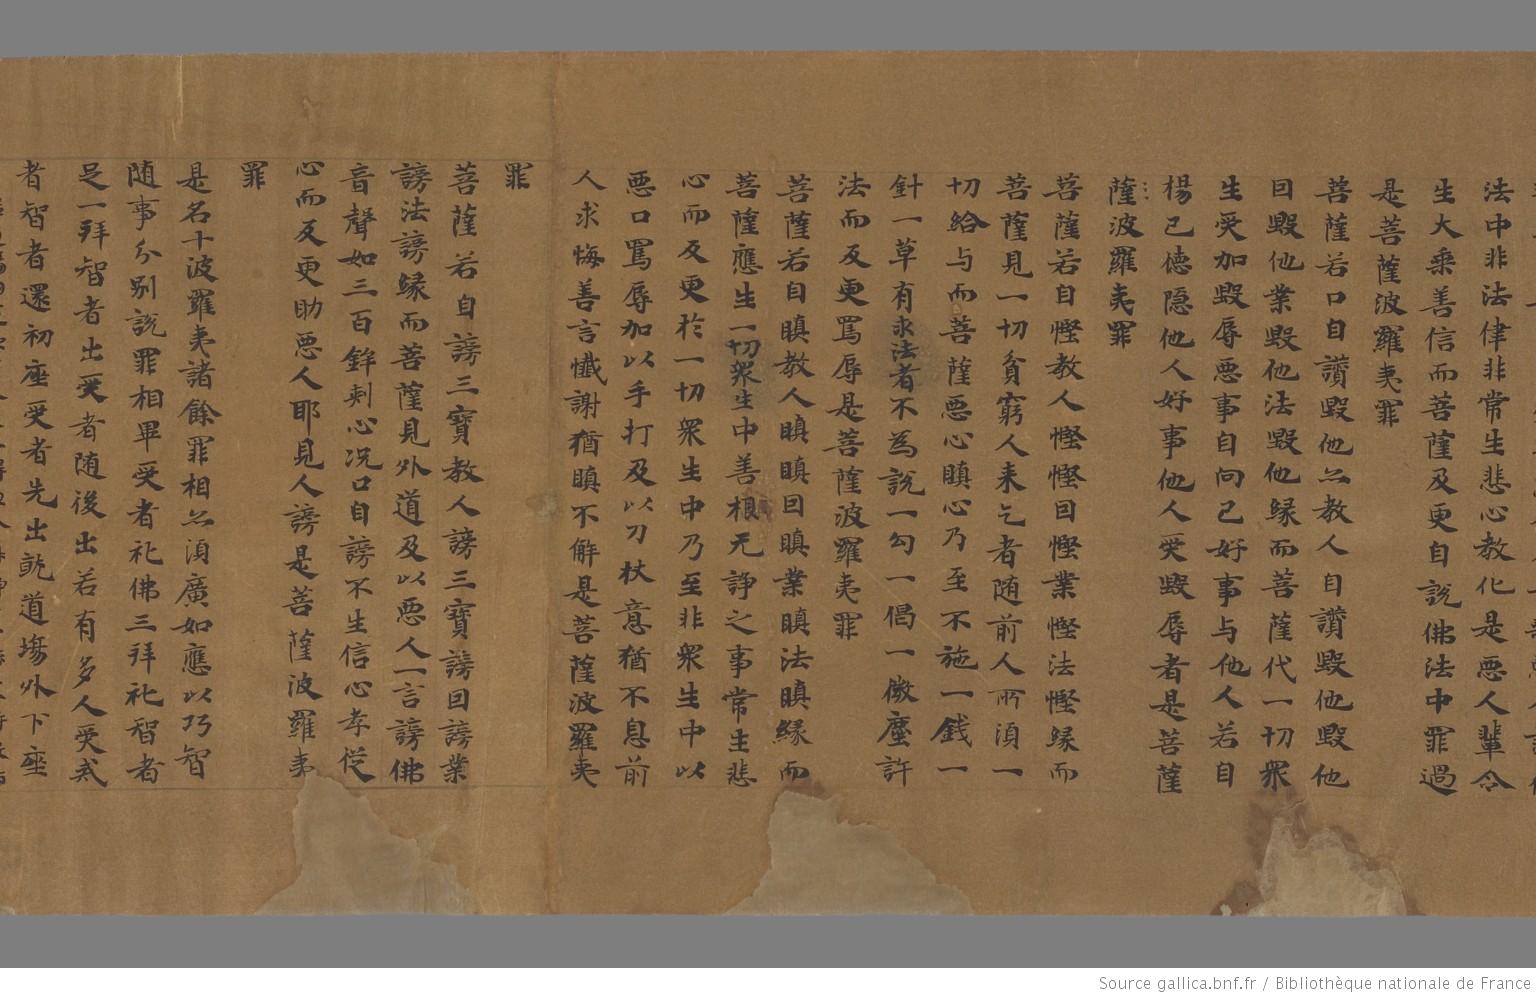 法中非法律非常生悲心教化是惡人輩令
生大乘善信而菩薩及更自說佛法中罪過
是菩薩波羅夷罪
菩薩若口自讚毀他亦教人自讚毀他毀他
因毀他業毀他法毀他緣而菩薩代一切衆
生受加毀辱惡事自向己好事与他人若自
楊己德隱他人好事他人受毀辱者是菩薩
薩波羅夷罪
菩薩若自慳教人慳慳因慳業慳法慳緣而
菩薩見一切貧窮人来乞者随前人所湏一
切給与而菩薩惡心瞋心乃至不施一錢一
針一草有求法者不為說一勾一偈一微塵許
法而反更罵辱是菩薩波羅夷罪
菩薩若自瞋教人瞋瞋因瞋業瞋法瞋緣而
菩薩應生一切衆生中善根无諍之事常生悲
心而反更於一切衆生中乃至非衆生中以
惡口罵辱加以手打及以刀杖意猶不息前
人求悔善言懺謝猶瞋不解是菩薩波羅夷
罪
菩薩若自謗三寶教人謗三寶謗因謗業
謗法謗緣而菩薩見外道及以惡人一言謗佛
音聲如三百鉾刾心况口自謗不生信心孝從
心而反更助惡人耶見人謗是菩薩波羅夷
罪
是名十波羅夷諸餘罪相亦湏廣如應以巧智
随事分別說罪相畢受者礼佛三拜礼智者
足一拜智者出受者随後出若有多人受戒
者智者還初座受者先出就道場外下座